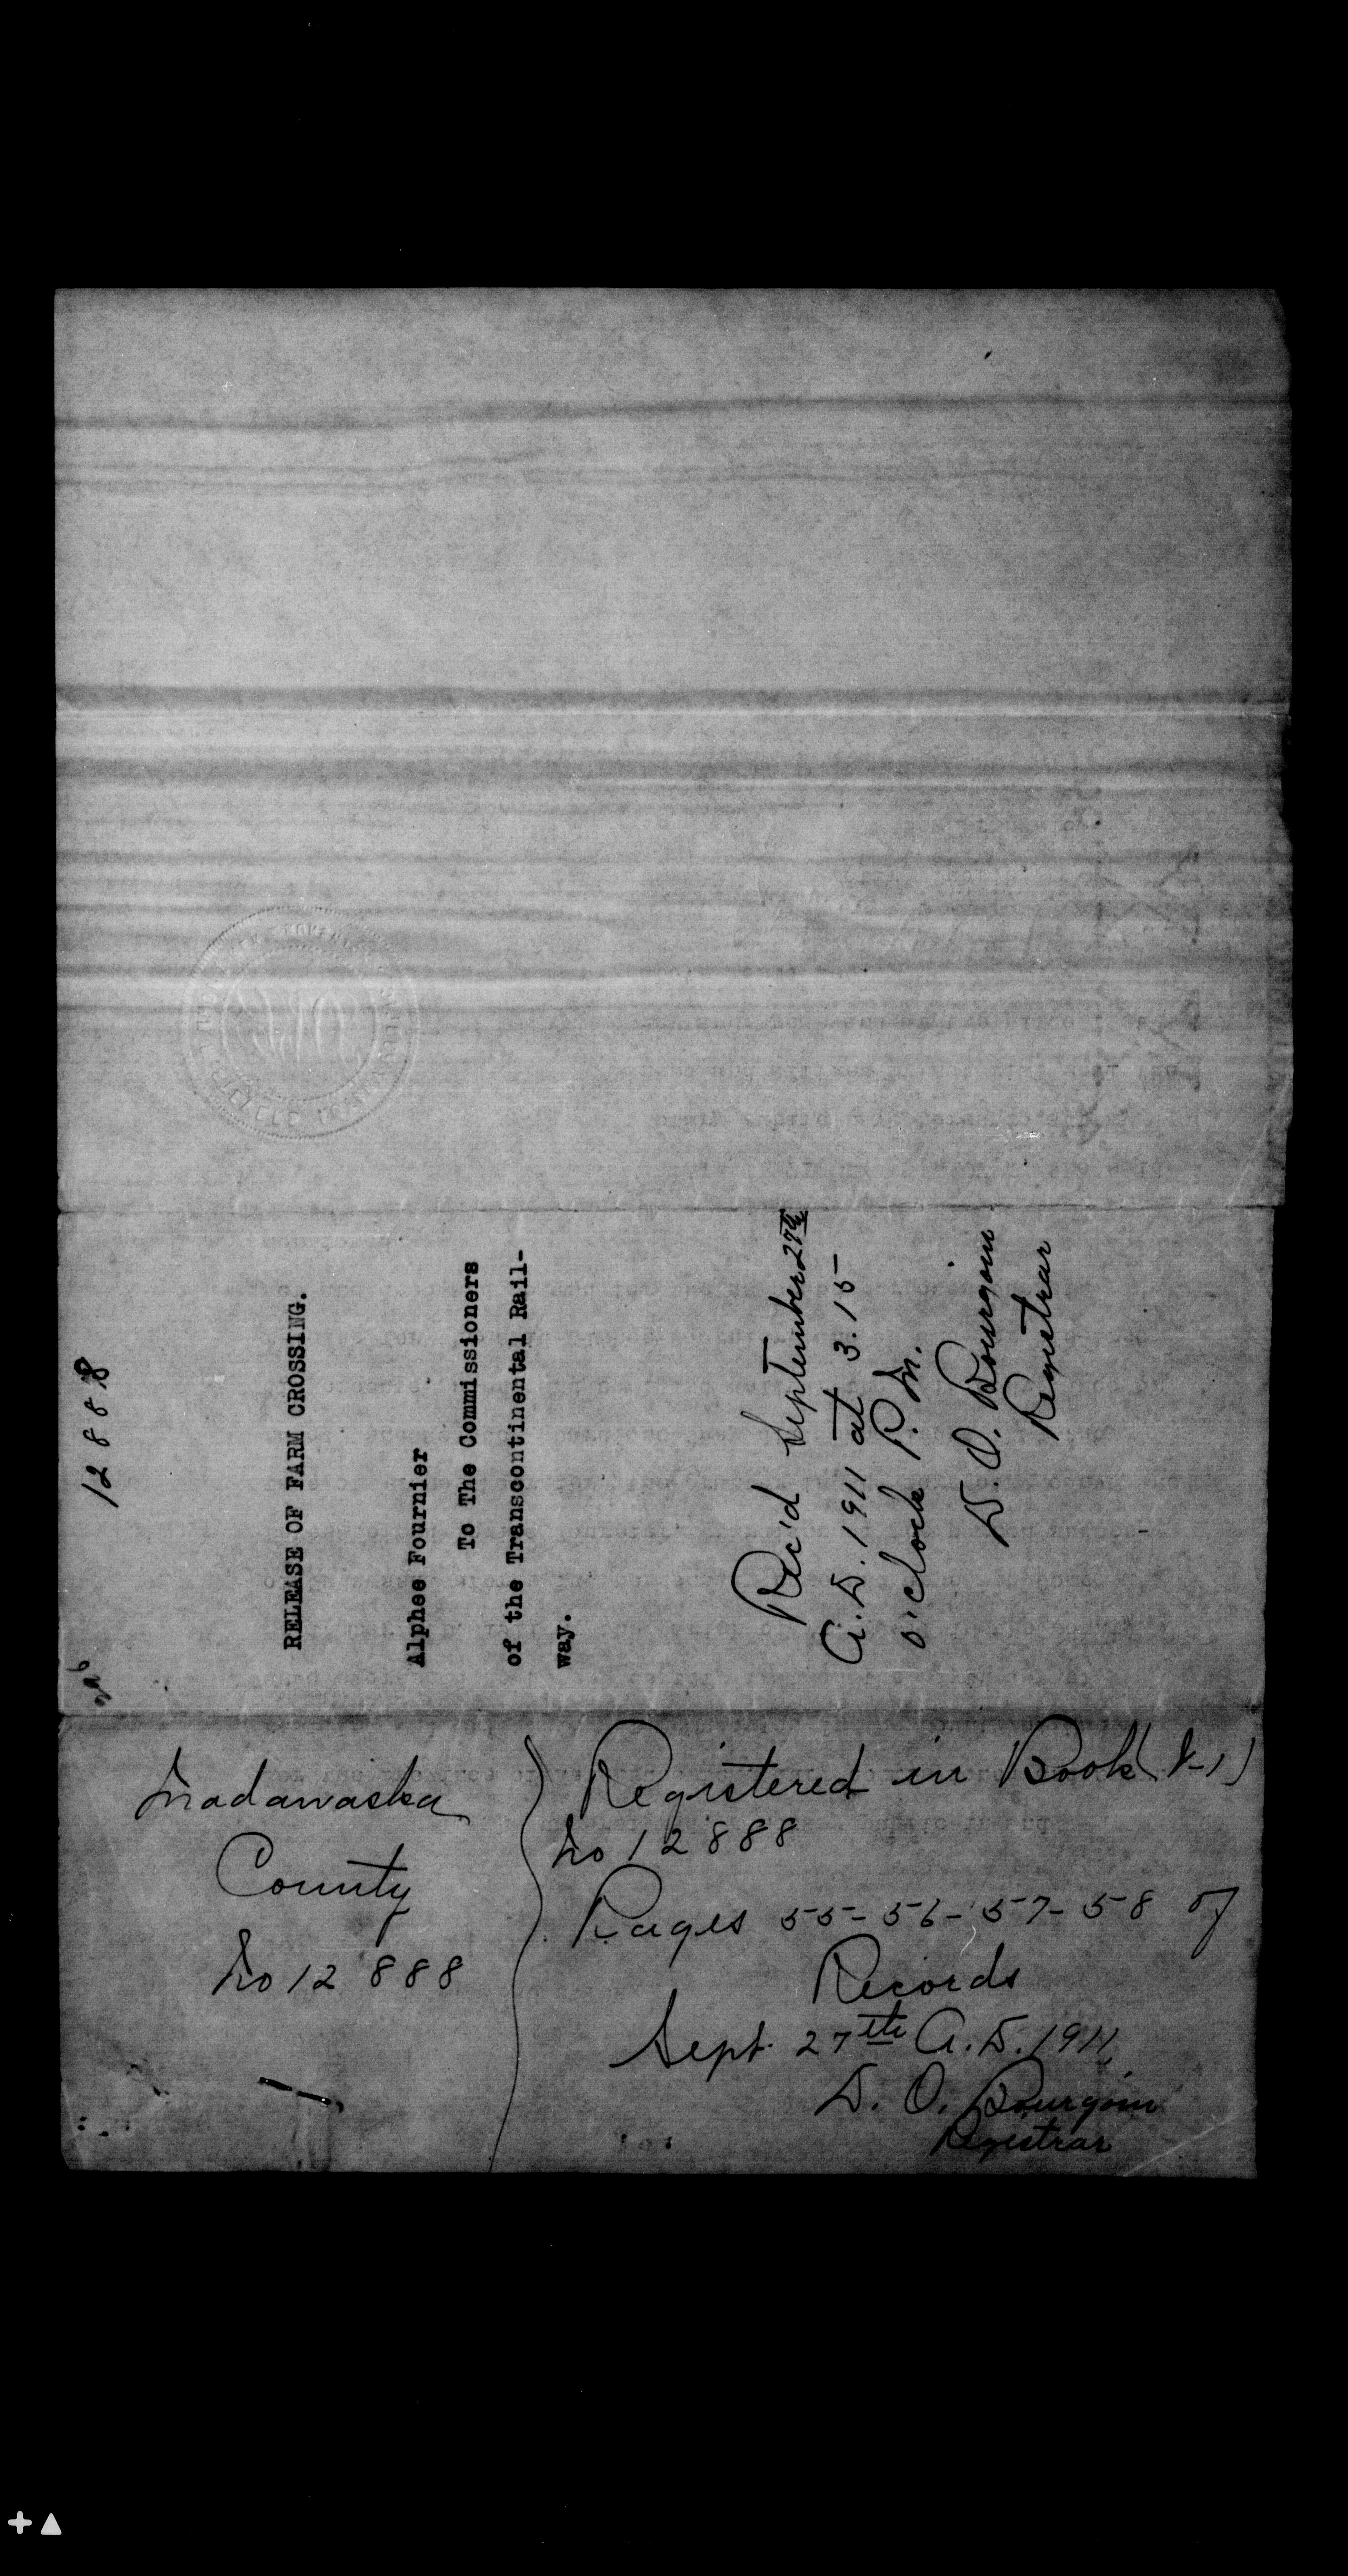 12888
RELEASE OF FARM CROSSING.
Alphee Fournier
To The Commissioners
of the Transcontinental Rail-
way.
Rec'd September 27th
A.D. 1911 at 3.15
o'clock P.M.
D. O. Bourgoin
Registrar
Madawaska
County
No 12888
Registered in Book
No 12888
Pages 55-56-57-58 of
Records
Sept. 27th A.D. 1911,
D. O. Bourgoin
Registrar